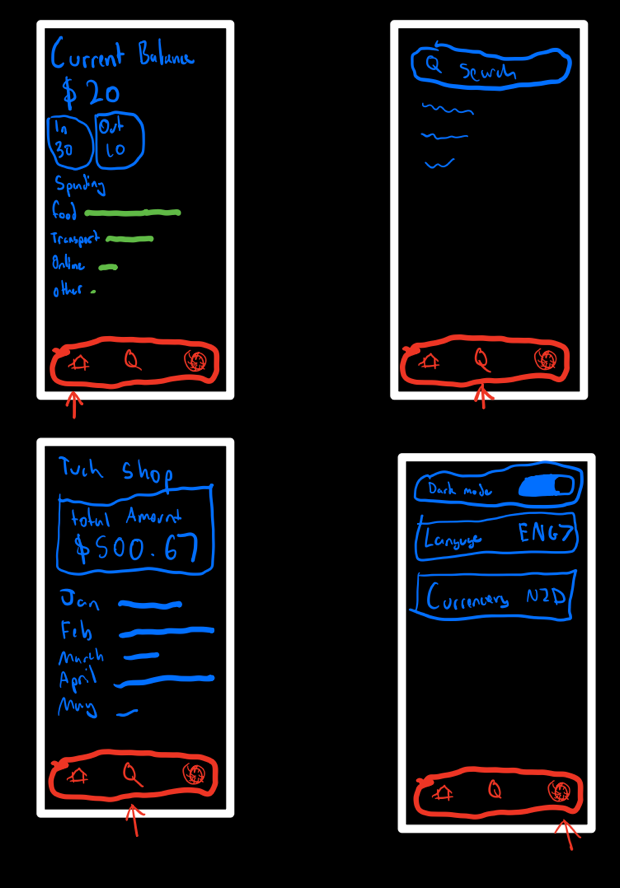 Current Balance
$20
In Out
30 10
Spending
food
Transport
Online
other
Search
Tuck Shop
total Amount
$500.67
Jan
Feb
March
April
May
Dark mode
Language ENG>
Currencery NZD